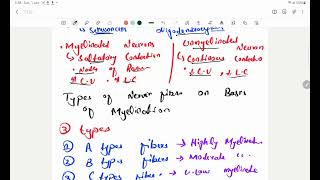 Schwanns oligodendrocytes
• Myelinated Neurons
↳ Saltatory Conduction
↳ Nodes of Ranv
↑ C.V ↓ L.C
unmyelinated Neuron
↳ Continous Conductio
↓ C.V ↓ L.C
Types of Nerve fibers on Bases
of Myelination
③ types
① A types fibers → Highly Myelinate
② B types fibers → Moderate
③ C types fiber → Low myelinate